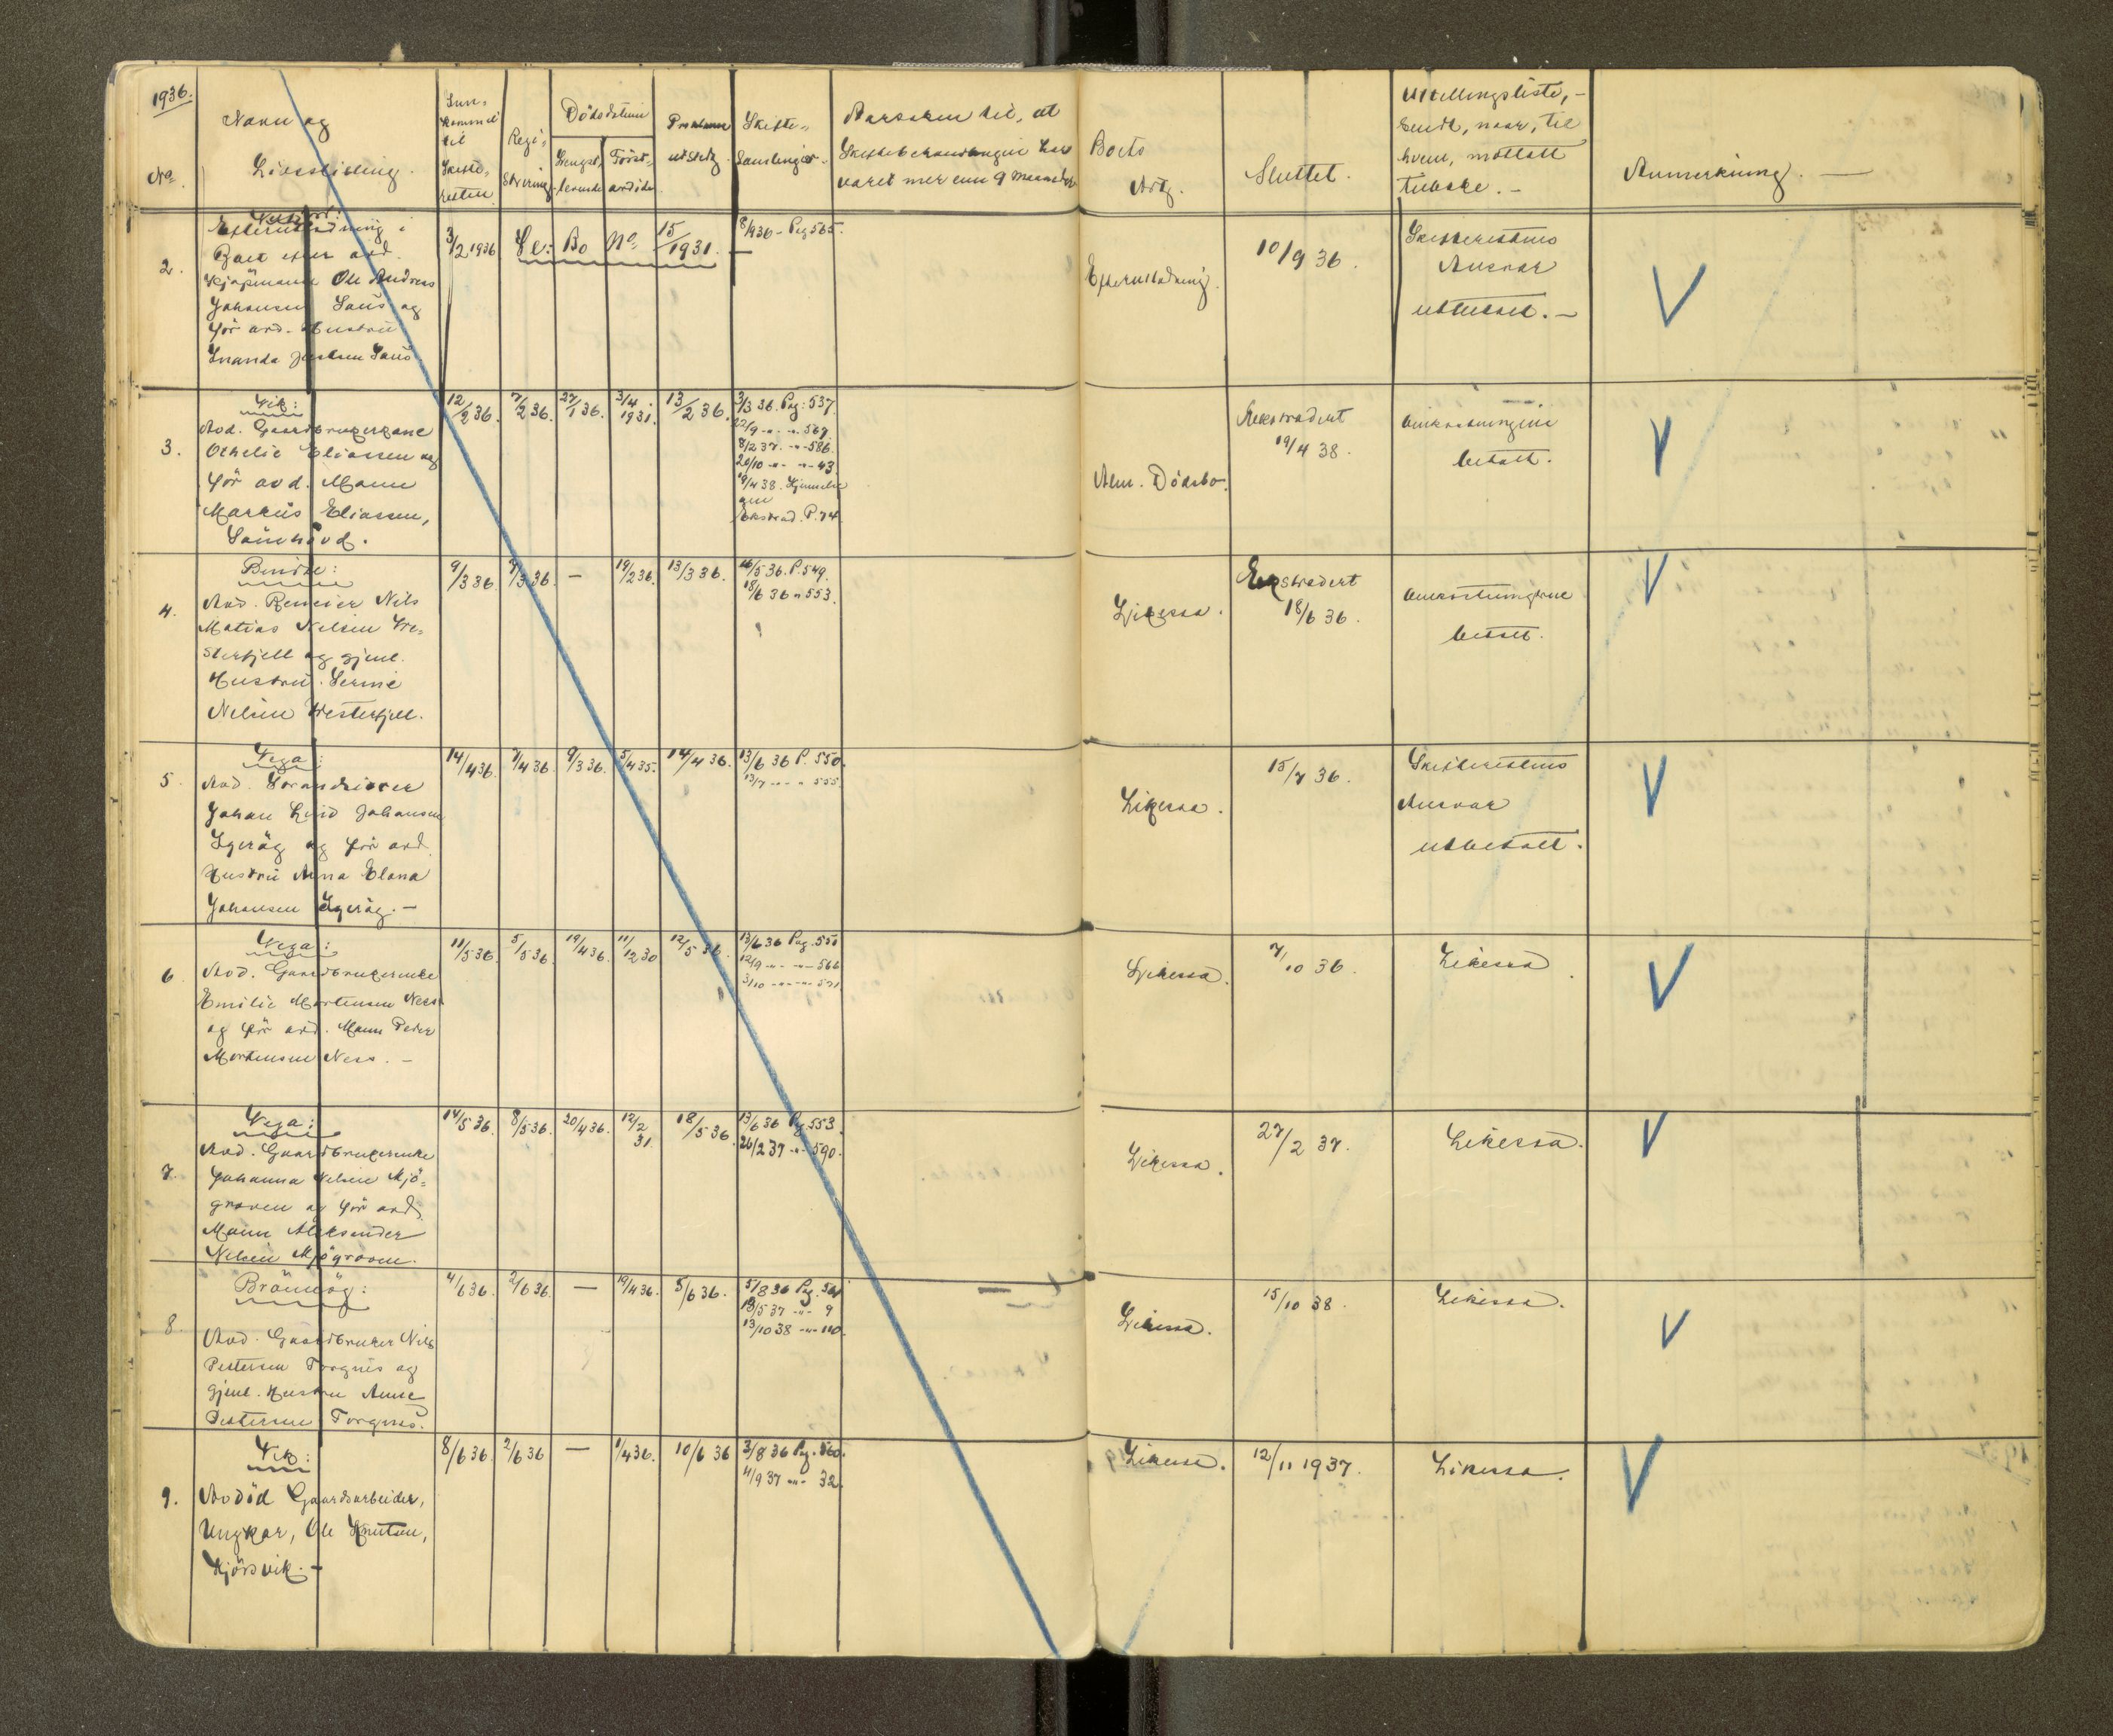 1936.
No.
Navn og
Livsstilling.
Inn-
kommet
til
Skifte-
retten
Regi-
strering
Dödsdatum
Lengst-
levende
Först-
avdöde
Proklama
utstedt
Skifte-
Samlinger.
Aarsaken til, at
Skiftebehandlingen har
varet mer enn 9 maaneder
Boets
Art.
Sluttet.
Utdellingsliste, -
sendt, naar, til
hvem, mottatt
tilbake. -
Anmerkning. -
2.
Efterutlodning i
Boet efter avd.
Kjøpmann Ole Andreas
Johansen Saus og
för avd. Hustru
3/2 1936
Se: Bo No. 15/1931. -
8/9 36 - Pag 565.
Efterutlodning.
10/9 36.
Skifterettens
Ansvar
utbetalt. -
3.
Vik:
Avd. Gaardbrukerkone
Othelie Eliassen og
för avd. Mann
Markus Eliassen,
Saushövd.
12/2 36.
7/2 36.
27/1 36.
3/4 1931.
13/2 36.
3/3 36. Pag: 537.
22/9 -"- "- 567
8/2 37. -"- 586.
20/10 -"- "- 43
19/4 38.
Ekstrad. P. 74
Alm. Dödsbo.
Ekstradert
19/4 38.
Omkostningene
betalt.
4.
Bindal:
Avd. Rentier Nils
Matias Nilsen Ve-
sterfjell og gjenl.
Hustru Serine
Nilsen Vesterfjell.
9/3 36
7/3 36.
-
19/2 36.
13/3 36.
16/5 36. P. 549.
18/6 36 " 553.
Likesaa.
Ekstradert
18/6 36.
Omkostningene
betalt.
5.
Vega:
Johan Johansen
og för avd.
Hustru Anna Elana
Johansen
14/4 36.
7/4 36.
9/3 36.
5/4 35.
14/4 36.
13/6 36 P. 550.
13/7 -"- " 555.
Likesaa.
15/7 36.
Skifterettens
Ansvar
utbetalt.
6.
Vega:
Avd. Gaardbrukerenke
Emilie Mortensen Ness
og för avd. Mann Peder
Mortensen Ness. -
11/5 36.
5/5 36.
19/4 36.
11/12 30
12/5 36.
13/6 36 Pag. 551
12/9 -"- -"- 566
3/10 -"- -"- 571
Likesaa.
7/10 36.
Likesaa.
7.
Vega:
Avd. Gaardbrukerenke
Johanna Nilsen Mjö-
graven og för avd.
Mann Aleksander
Nilsen Mjögraven.
14/5 36.
8/5 36.
20/4 36.
12/2 31.
18/5 36.
13/6 36 Pag 553.
26/2 37 -"- 590.
Likesaa.
27/2 37.
Likesaa.
8.
Brönnöy:
Avd. Gaardbruker Nils
Pettersen Torgnes og
gjenl. Hustru Anne
Pettersen Torgnes.
4/6 36.
2/6 36.
-
19/4 36.
5/6 36.
5/8 36 Pag. 561
13/5 37 -"- 9
13/10 38 -"- 110.
Likesaa.
15/10 38.
Likesaa.
9.
Vik:
Avdöd Gaardsarbeider,
Ungkar, Ole Knutsen,
Kjörsvik. -
8/6 36.
2/6 36
-
1/4 36.
10/6 36
3/8 36 Pag. 560.
4/9 37 -"- 32.
Likesaa.
12/11 1937.
Likesaa.